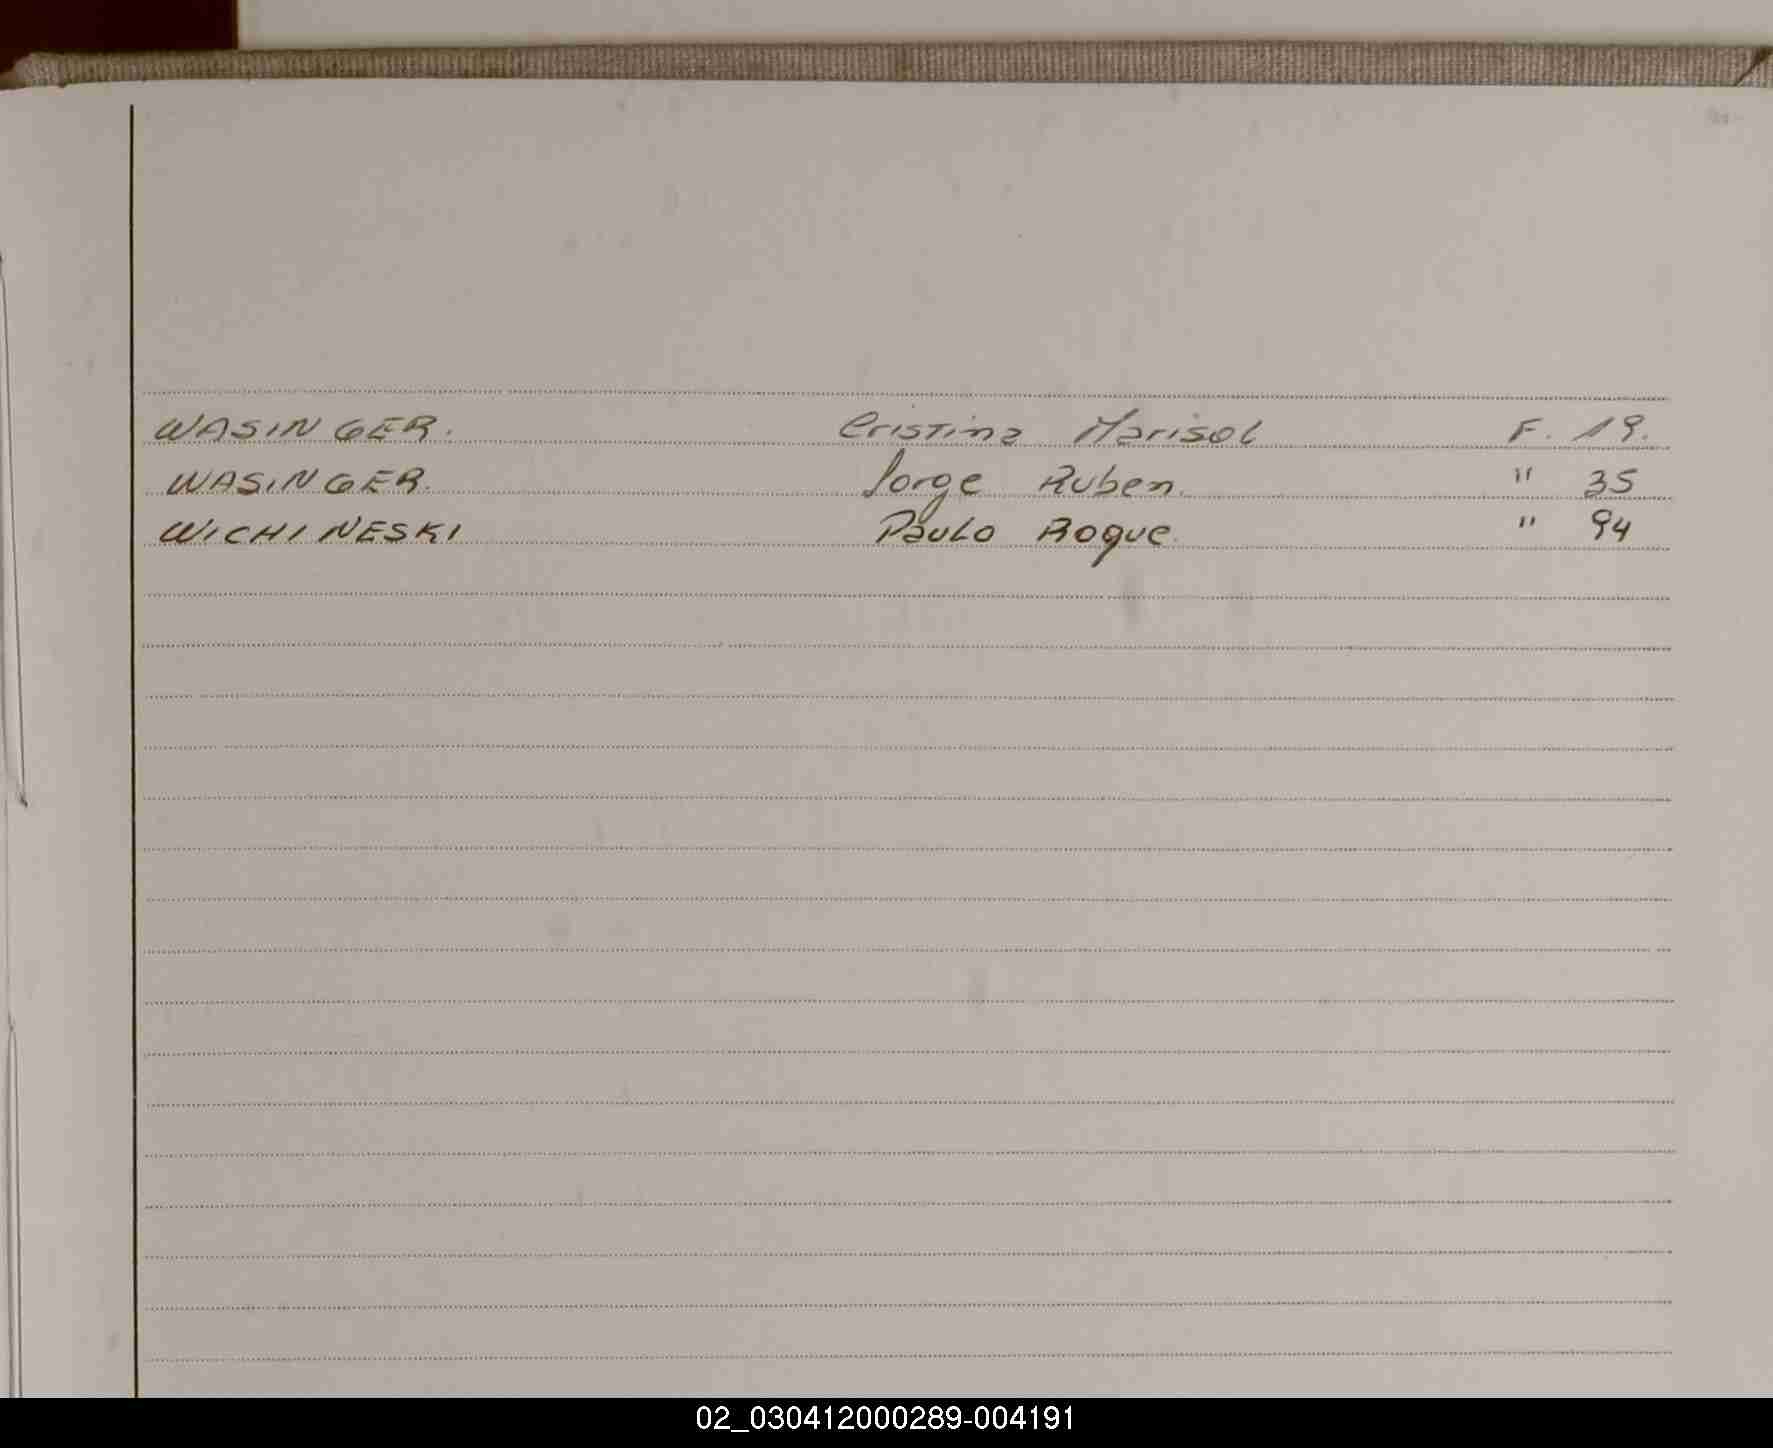 WASINGER. Cristina Marisol F. 19.
WASINGER. Jorge Ruben. " 35
WICHINESKI Paulo Roque. " 94
02_030412000289-004191